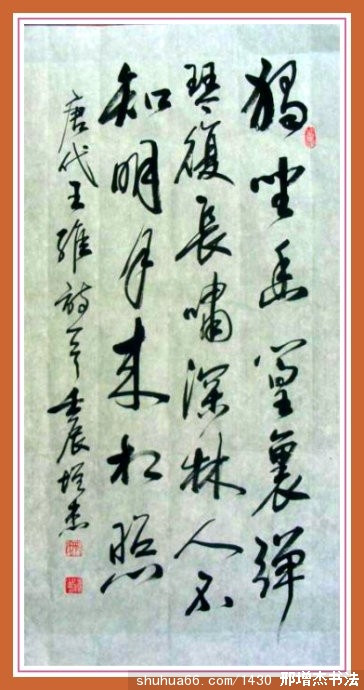 獨坐幽篁裏彈
琴復長嘯深林人不
知明月来相照
唐代王維詩一首 壬辰增杰
shuhua66.com/1430 邢增杰书法